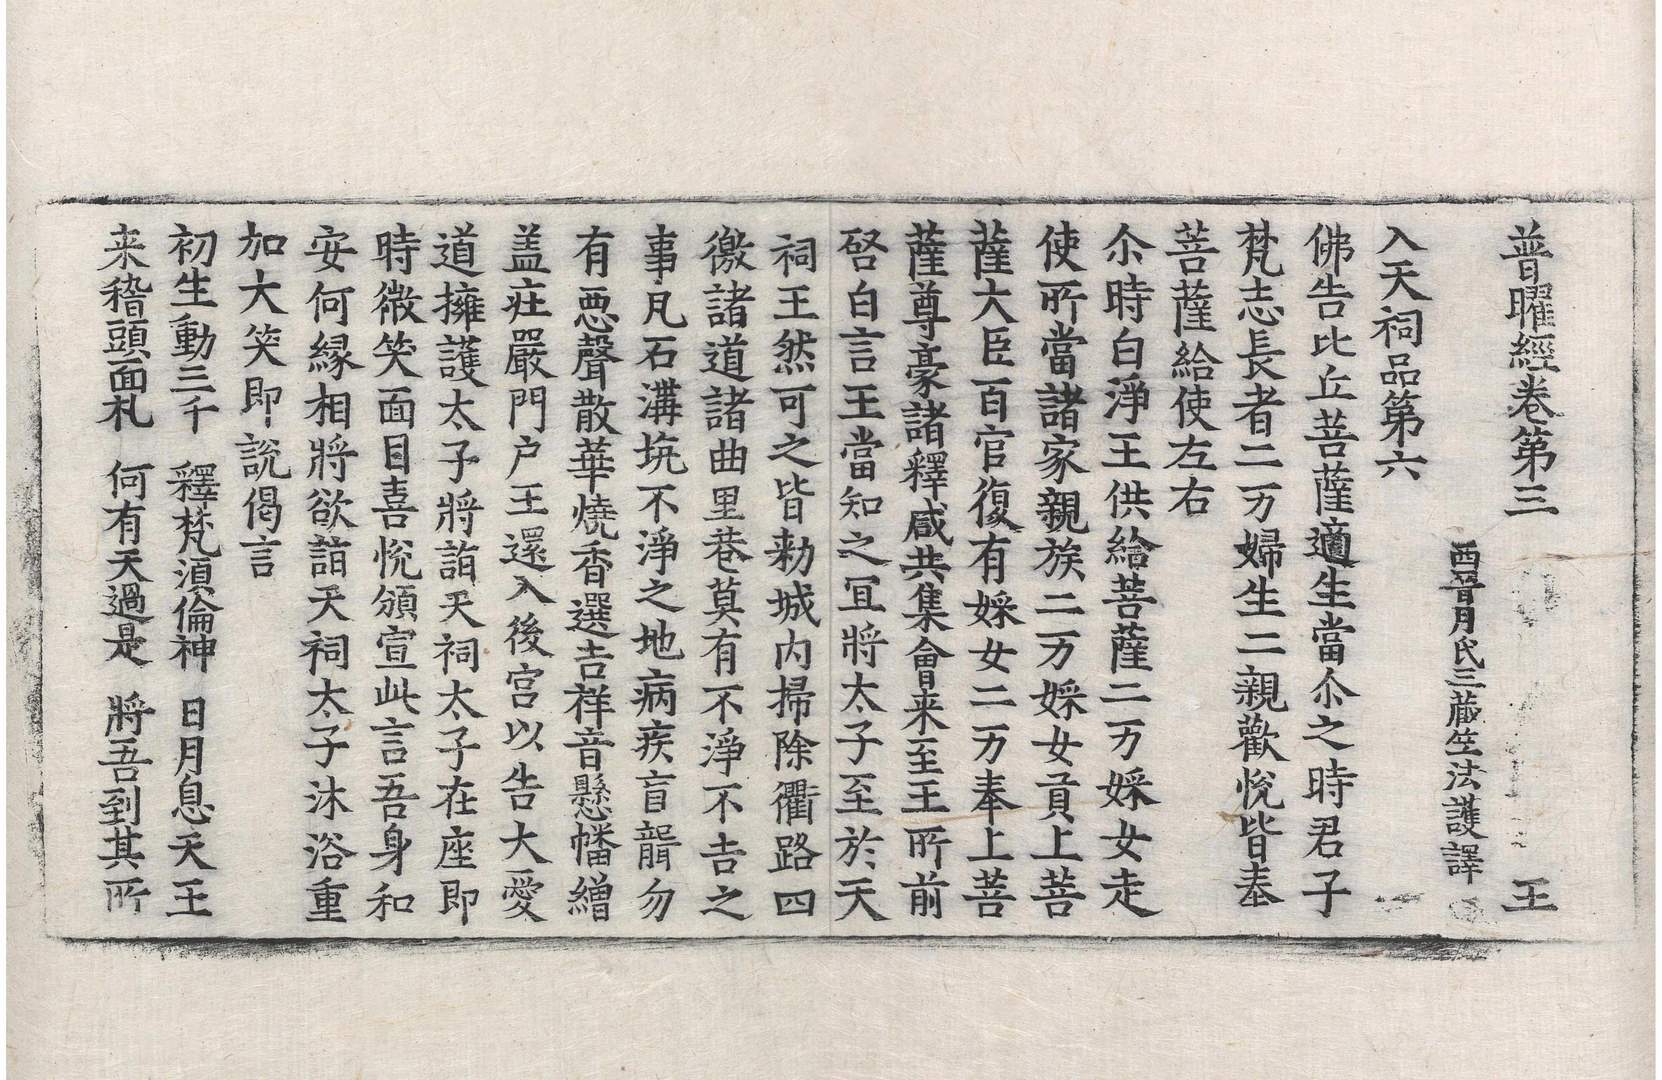 普曜經卷第三 王
西晉月氏三藏竺法護譯
入天祠品第六
佛告比丘菩薩適生當尒之時君子
梵志長者二万婦生二親歡悅皆奉
菩薩給使左右
尒時白淨王供給菩薩二万婇女走
使所當諸家親族二万婇女貢上菩
薩大臣百官復有婇女二万奉上菩
薩尊豪諸釋咸共集會来至王所前
啓白言王當知之宜將太子至於天
祠王然可之皆勑城内掃除衢路四
徼諸道諸曲里巷莫有不淨不吉之
事凡石溝坑不淨之地病疾盲聾勿
有惡聲散華燒香選吉祥音懸幡繒
盖莊嚴門户王還入後宮以告大愛
道擁護太子將詣天祠太子在座即
時微笑面目喜悅頒宣此言吾身和
安何緣相將欲詣天祠太子沐浴重
加大笑即說偈言
初生動三千 釋梵湏倫神 日月息天王
来稽頭面礼 何有天過是 將吾到其所